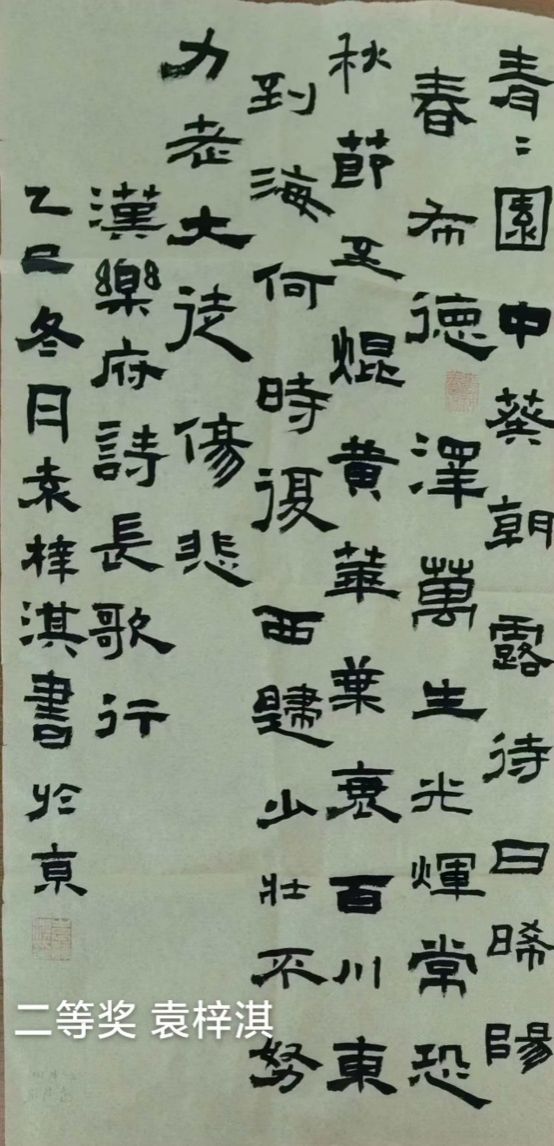 青〻園中葵朝露待日晞陽
春布德澤萬生光煇常恐
秋節至焜黃華葉衰百川東
到海何時復西歸少壯不努
力老大徒傷悲
漢樂府詩長歌行
乙巳冬日袁梓淇書於京
二等奖 袁梓淇